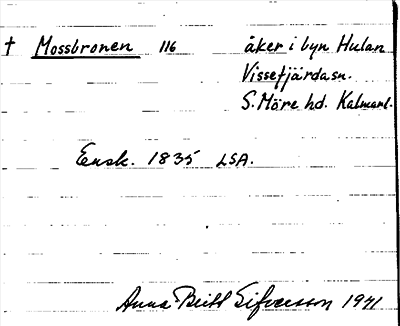 † Mossbronen 116 åker i byn Hulan
Vissefjärda sn.
S. Möre hd. Kalmarl.
Ensk. 1835 LSA.
Anna-Britt Sifversson 1941